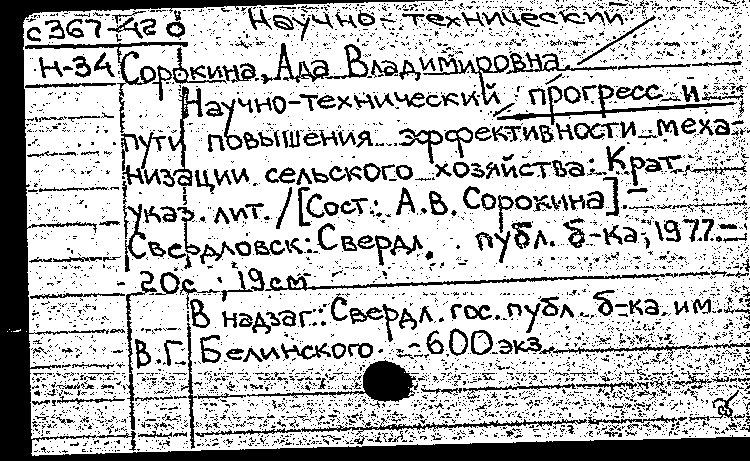 с367-420 Научно-технический
Н-34 Сорокина, Ада Владимировна.
Научно-технический прогресс и
пути повышения эффективности меха
низации сельского хозяйства: Крат.
указ. лит. / [Сост.: А.В. Сорокина]. –
Свердловск: Свердл. публ. б-ка, 1977. –
- 20с.; 19см.
В надзаг.: Свердл. гос. публ. б-ка им.
В.Г. Белинского. - 600 экз.